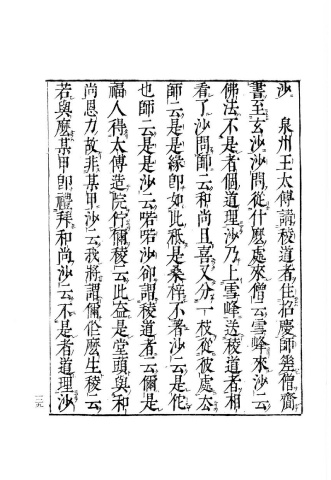 沙　泉州王太傅請稜道者住招慶師差僧齎
書至玄沙沙問從什麽處來僧云雪峰來沙云
佛法不是者個道理沙乃上雪峰送稜道者相
看了沙問師云和尚且喜又分一枝從彼處去
師云是是緣即如此秖是桑梓不著沙云是佗
也師云是是沙云喏喏沙卻謂稜道者云儞是
福人得太傅造院佇儞稜云此益是堂頭與和
尚恩力故非某甲沙云我將謂儞恁麽生稜云
若與麽某甲即禮拜和尚沙云不是者道理沙